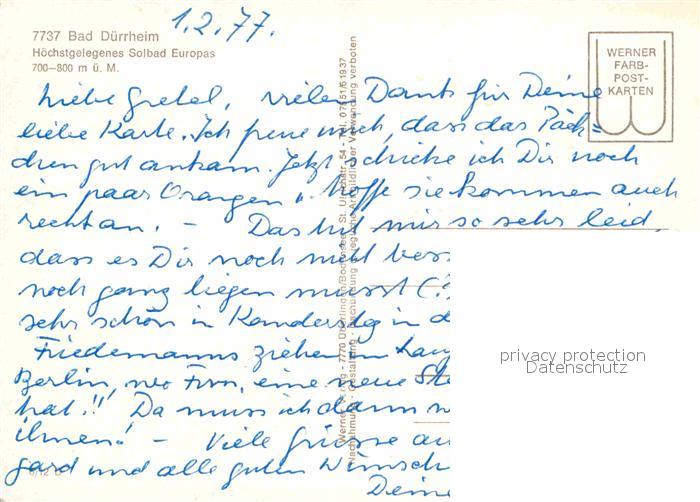 1.2.77.
7737 Bad Dürrheim
Höchstgelegenes Solbad Europas
700–800 m ü. M.
WERNER
FARB-
POST-
KARTEN
Liebe Gretel, vielen Dank für Deine
liebe Karte. Ich freue mich, dass das Päck=
chen gut ankam. Jetzt schicke ich Dir noch
ein paar Orangen u. hoffe sie kommen auch
recht an. – Das tut mir so sehr leid,
dass es Dir noch nicht bess
noch ganz liegen musst (?
sehr schön in Kandersteg in d
Friedemanns ziehen im
Berlin, wo Frn, eine neue Ste
hat!! Da muss ich dann
ihnen! – Viele Grüsse an
gard und alle guten Wünsch
Deine
Werner Verlag - 7770 Überlingen/Bodensee - St. Ulrichstr. 54 - Tel. 07551/61937
privacy protection
Datenschutz